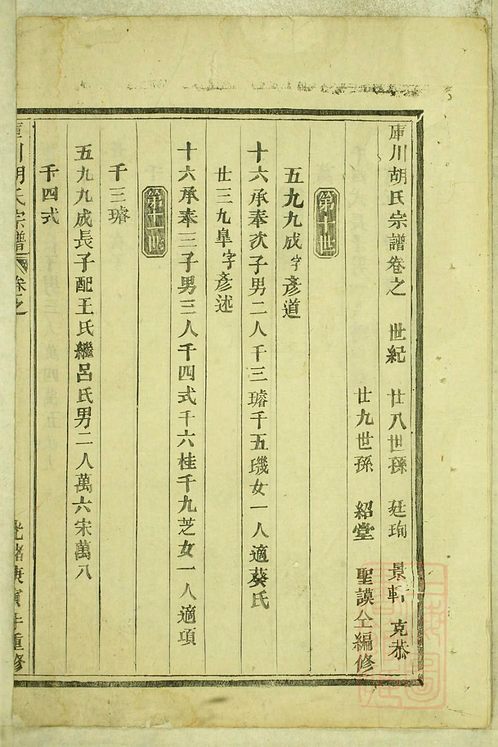 庫川胡氏宗譜卷之 世紀 廿八世孫 廷珣 景軒 克恭
廿九世孫 紹堂 聖謨仝編修
五九九成字彥道
十六承奉次子男二人千三璿千五璣女一人適葵氏
廿三九臯字彥述
十六承奉三子男三人千四式千六桂千九芝女一人適項
千三璿
五九九成長子配王氏繼呂氏男二人萬六宋萬八
千四式
庫川胡氏宗譜 卷之
光緒庚寅年重修